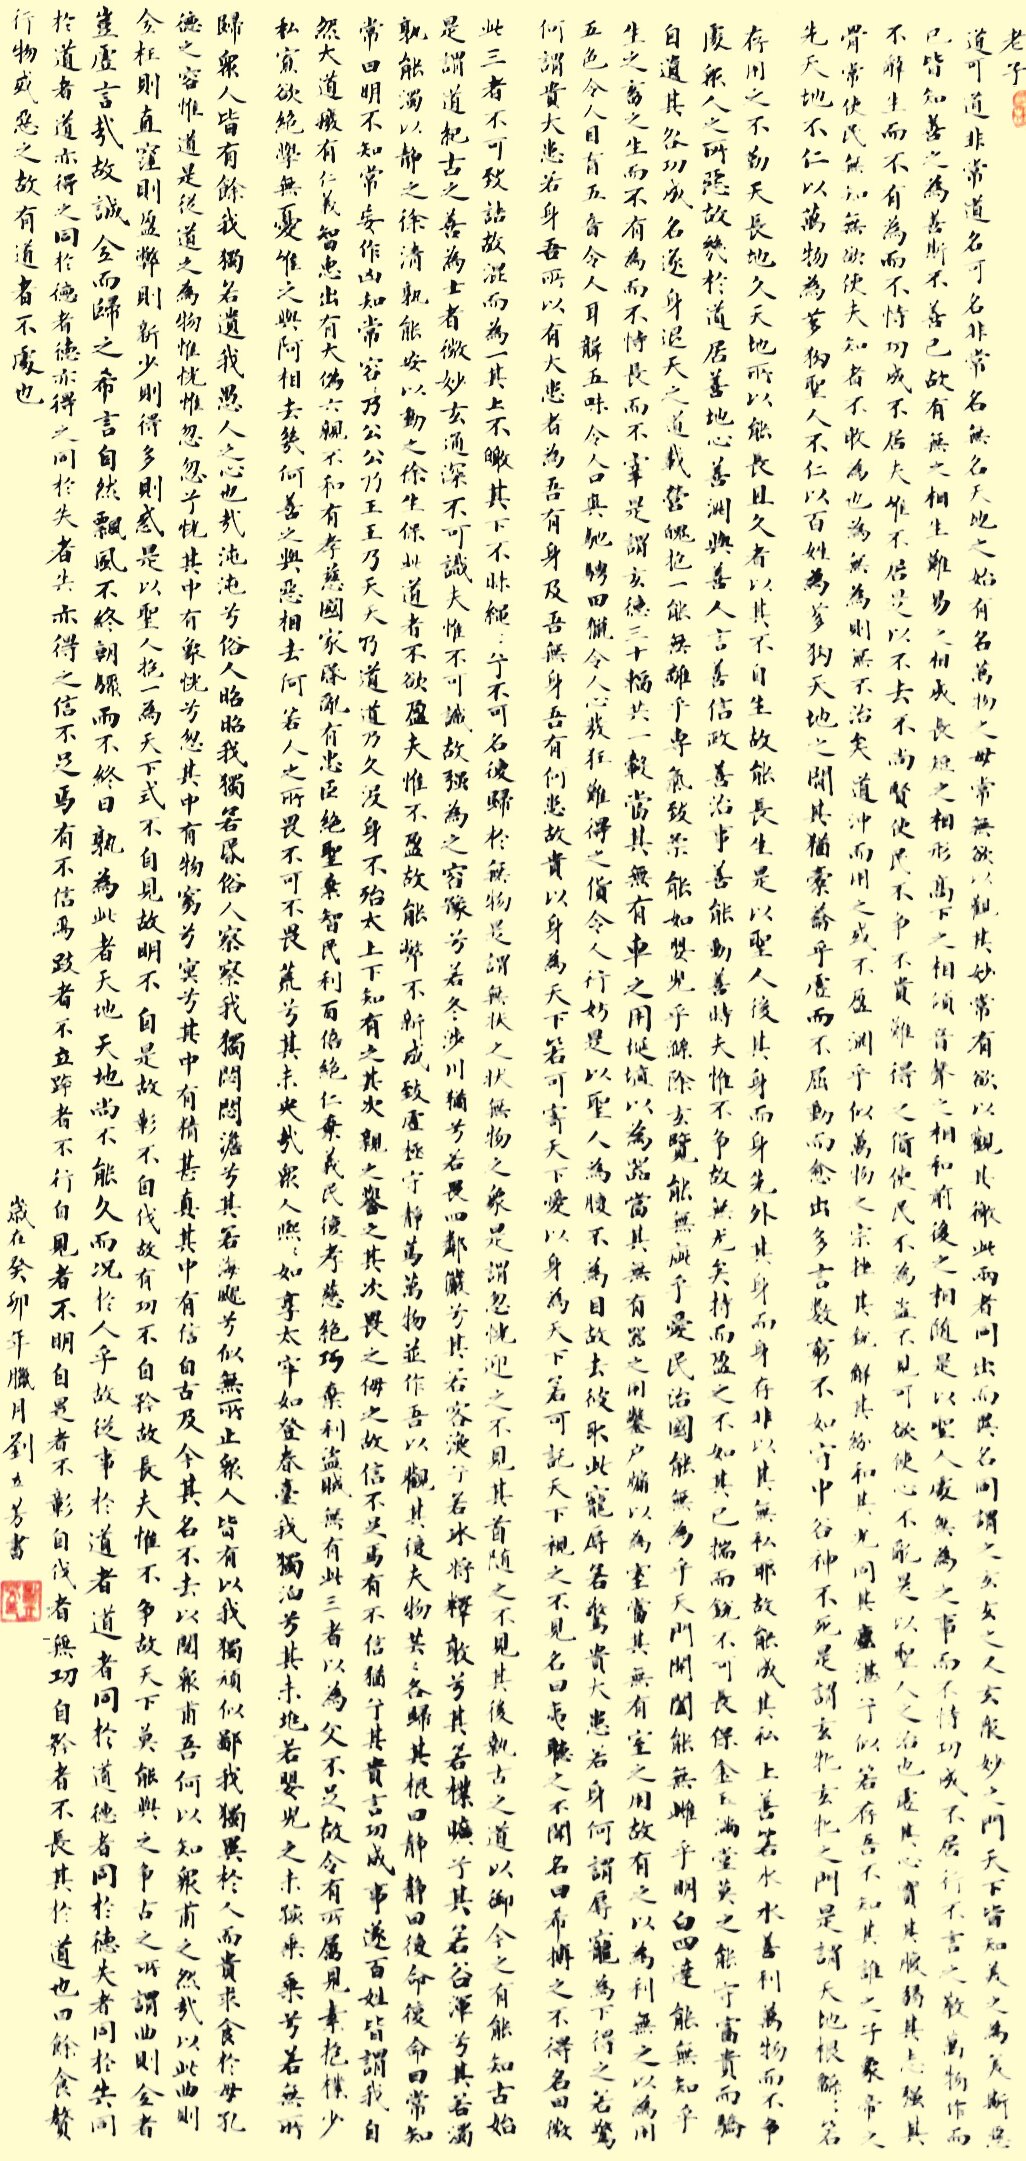 老子
道可道非常道名可名非常名無名天地之始有名萬物之母常無欲以觀其妙常有欲以觀其徼此兩者同出而異名同謂之玄玄之又玄衆妙之門天下皆知美之為美斯惡
已皆知善之為善斯不善已故有無之相生難易之相成長短之相形高下之相傾音聲之相和前後之相随是以聖人處無為之事而不恃功成不居行不言之教萬物作而
不辭生而不有為而不恃功成不居夫惟不居是以不去不尚賢使民不争不貴難得之貨使民不為盗不見可欲使心不亂是以聖人之治也虚其心實其腹弱其志强其
骨常使民無知無欲使夫知者不敢為也為無為則無不治矣道沖而用之或不盈淵乎似萬物之宗挫其銳解其紛和其光同其塵湛兮似若存吾不知其誰之子象帝之
先天地不仁以萬物為芻狗聖人不仁以百姓為芻狗天地之間其猶橐籥乎虚而不屈動而愈出多言數窮不如守中谷神不死是謂玄牝玄牝之門是謂天地根緜緜若
存用之不勤天長地久天地所以能長且久者以其不自生故能長生是以聖人後其身而身先外其身而身存非以其無私耶故能成其私上善若水水善利萬物而不争
處衆人之所惡故幾於道居善地心善淵與善人言善信政善治事善能動善時夫惟不争故無尤矣持而盈之不如其已揣而銳不可長保金玉滿堂莫之能守富貴而驕
自遺其咎功成名遂身退天之道載營魄抱一能無離乎專氣致柔能如嬰兒乎滌除玄覽能無疵乎愛民治國能無為乎天門開闔能無雌乎明白四達能無知乎
生之畜之生而不有為而不恃長而不宰是謂玄德三十輻共一轂當其無有車之用埏埴以為器當其無有器之用鑿户牖以為室當其無有室之用故有之以為利無之以為用
五色令人目盲五音令人耳聾五味令人口爽馳騁田獵令人心發狂難得之貨令人行妨是以聖人為腹不為目故去彼取此寵辱若驚貴大患若身何謂辱寵為下得之若驚
何謂貴大患若身吾所以有大患者為吾有身及吾無身吾有何患故貴以身為天下若可寄天下愛以身為天下若可託天下視之不見名曰夷聽之不聞名曰希搏之不得名曰微
此三者不可致詰故混而為一其上不皦其下不昧繩繩兮不可名復歸於無物是謂無狀之狀無物之象是謂忽恍迎之不見其首随之不見其後執古之道以御今之有能知古始
是謂道紀古之善為士者微妙玄通深不可識夫惟不可識故强為之容豫兮若冬涉川猶兮若畏四鄰儼兮其若客渙兮若冰將釋敦兮其若樸曠兮其若谷渾兮其若濁
孰能濁以静之徐清孰能安以動之徐生保此道者不欲盈夫惟不盈故能弊不新成致虚極守静萬萬物並作吾以觀其復夫物芸芸各歸其根曰静静曰復命復命曰常知
常曰明不知常妄作凶知常容容乃公公乃王王乃天天乃道道乃久没身不殆太上下知有之其次親之譽之其次畏之侮之故信不足焉有不信猶兮其貴言功成事遂百姓皆謂我自
然大道廢有仁義智惠出有大偽六親不和有孝慈國家昏亂有忠臣絶聖棄智民利百倍絶仁棄義民復孝慈絶巧棄利盗賊無有此三者以為文不足故令有所屬見素抱樸少
私寡欲絶學無憂唯之與阿相去幾何善之與惡相去何若人之所畏不可不畏荒兮其未央哉衆人熙熙如享太牢如登春臺我獨泊兮其未兆若嬰兒之未孩乘乘兮若無所
歸衆人皆有餘我獨若遺我愚人之心也哉沌沌兮俗人昭昭我獨若昏俗人察察我獨悶悶澹兮其若海飂兮似無所止衆人皆有以我獨頑似鄙我獨異於人而貴求食於母孔
德之容惟道是從道之為物惟恍惟忽忽兮恍其中有象恍兮忽其中有物窈兮冥兮其中有情甚真其中有信自古及今其名不去以閱衆甫吾何以知衆甫之然哉以此曲則
全枉則直窪則盈弊則新少則得多則惑是以聖人抱一為天下式不自見故明不自是故彰不自伐故有功不自矜故長夫惟不争故天下莫能與之争古之所謂曲則全者
豈虚言哉故誠全而歸之希言自然飄風不終朝驟而不終日孰為此者天地天地尚不能久而况於人乎故從事於道者道者同於道德者同於德失者同於失同
於道者道亦得之同於德者德亦得之同於失者失亦得之信不足焉有不信焉跂者不立跨者不行自見者不明自是者不彰自伐者無功自矜者不長其於道也曰餘食贅
行物或惡之故有道者不處也
歲在癸卯年臘月劉五芳書